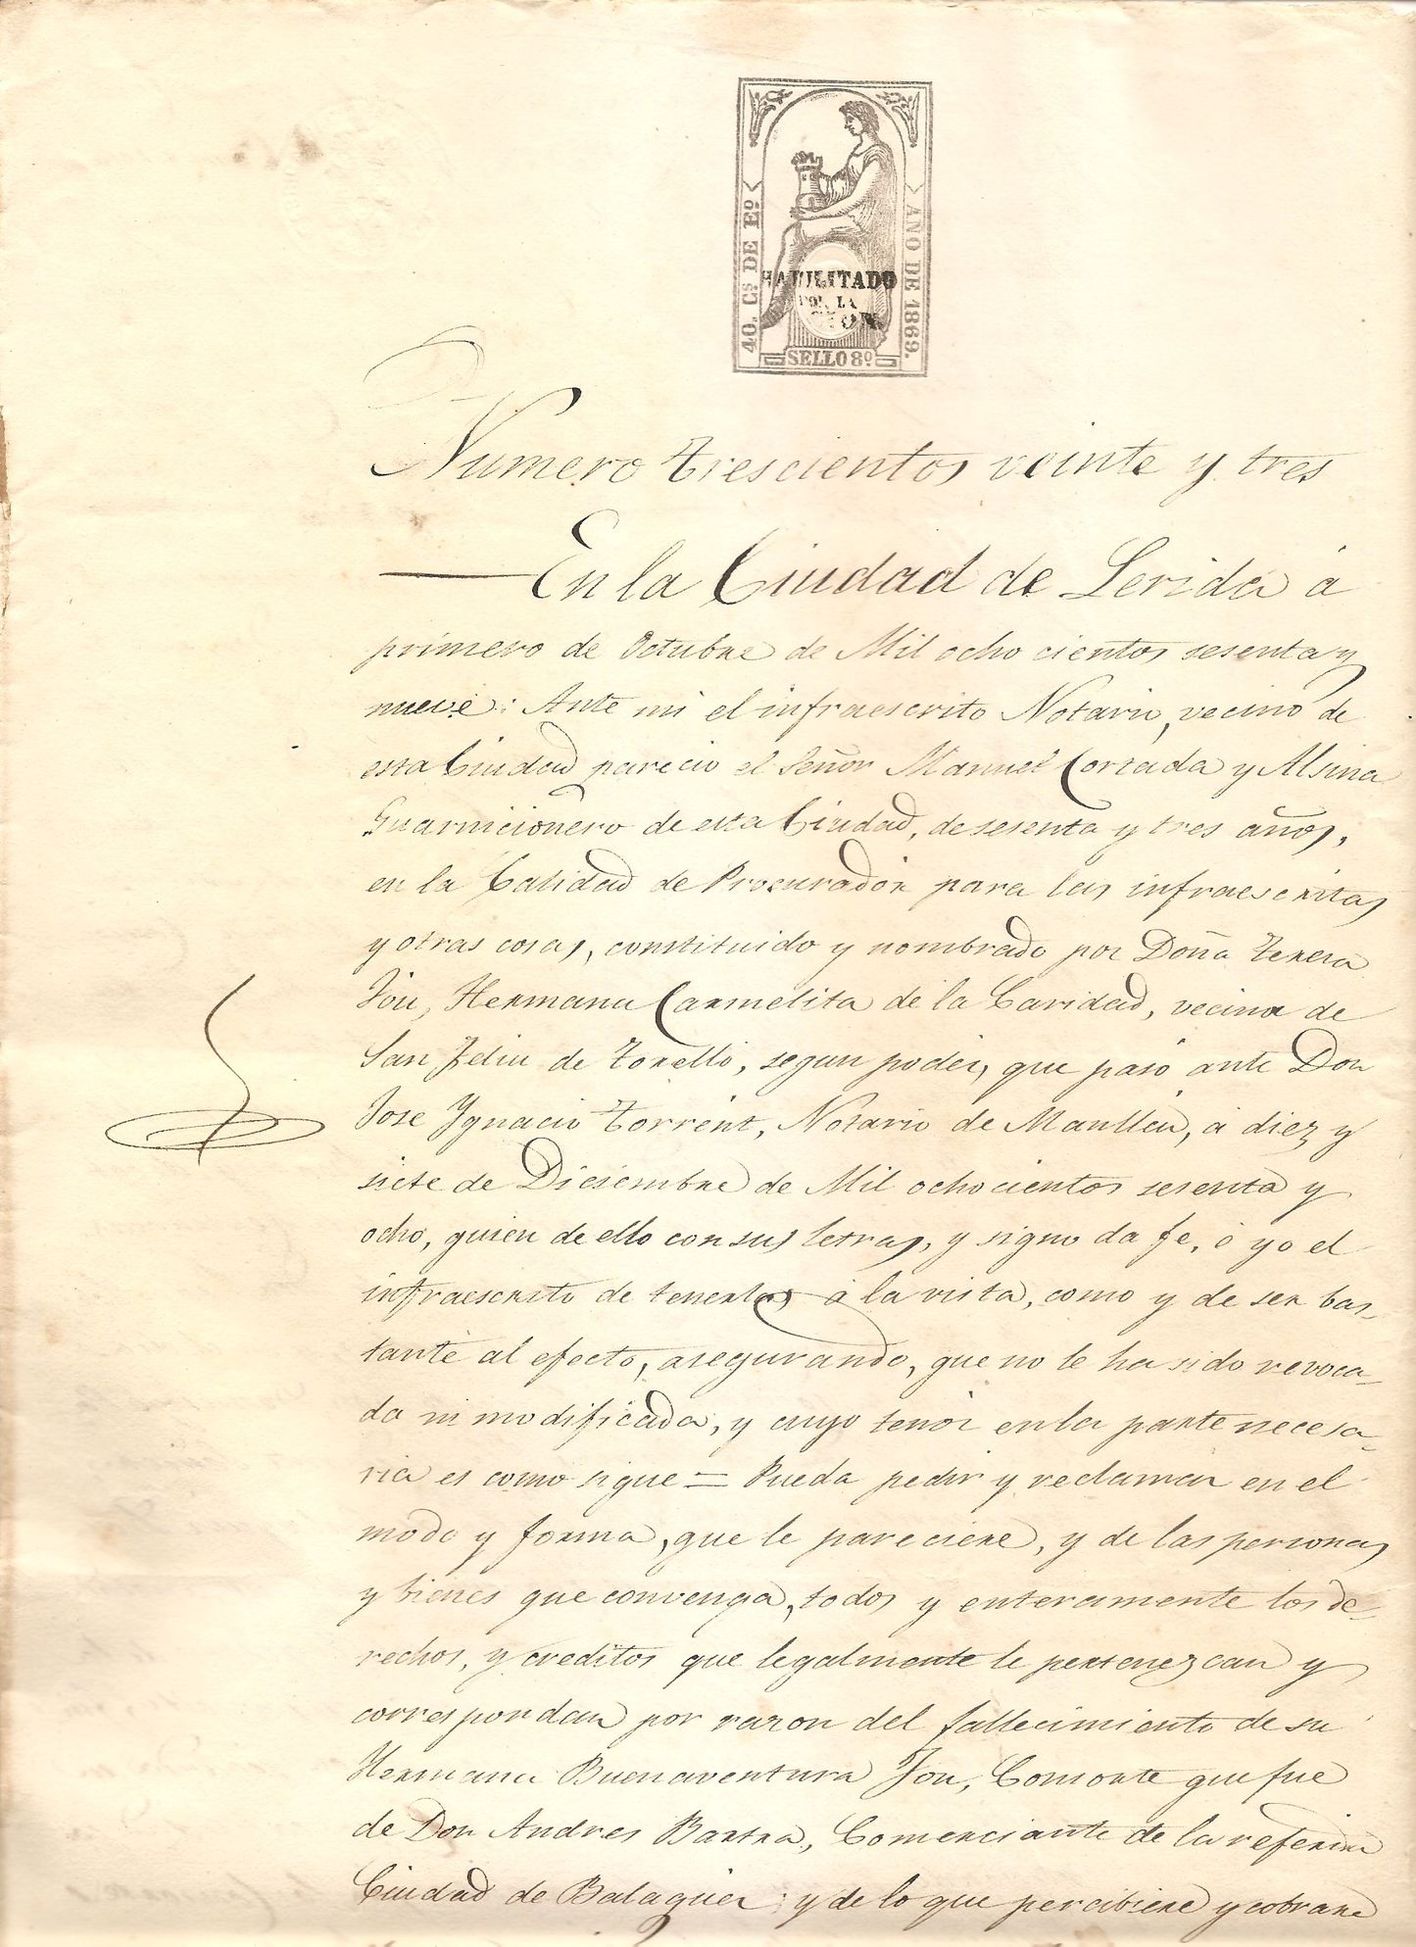 40. Cs. DE Eº.
AÑO DE 1869.
HABILITADO
POR LA
SELLO 8º
Numero trescientos veinte y tres
En la Ciudad de Lerida á
primero de Octubre de Mil ocho cientos sesenta y
nueve: Ante mi el infraescrito Notario, vecino de
esta Ciudad parecio el Señor Manuel Corzada y Alsina
Guarnicionero de esta Ciudad, de sesenta y tres años,
en la Calidad de Procurador para las infraescritas
y otras cosas, constituido y nombrado por Doña Teresa
Jou, Hermana Carmelita de la Caridad, vecina de
San Feliu de Torelló, segun poder, que pasó ante Don
Jose Ygnacio Torrent, Notario de Manlleu, á diez y
siete de Diciembre de Mil ocho cientos sesenta y
ocho, quien de ello con sus letras, y signo da fe, é yo el
infraescrito de tenerlas á la vista, como y de ser bas-
tante al efecto, asegurando, que no le ha sido revoca-
da ni modificada, y cuyo tenor en la parte necesa-
ria es como sigue = Pueda pedir y reclamar en el
modo y forma, que le pareciere, y de las personas
y bienes que convenga, todos y enteramente los de-
rechos, y creditos que legalmente le pertenezcan y
correspondan por razon del fallecimiento de su
Hermana Buenaventura Jou, Consorte que fue
de Don Andres Bartra, Comerciante de la referida
Ciudad de Balaguer; y de lo que percibiere y cobrare